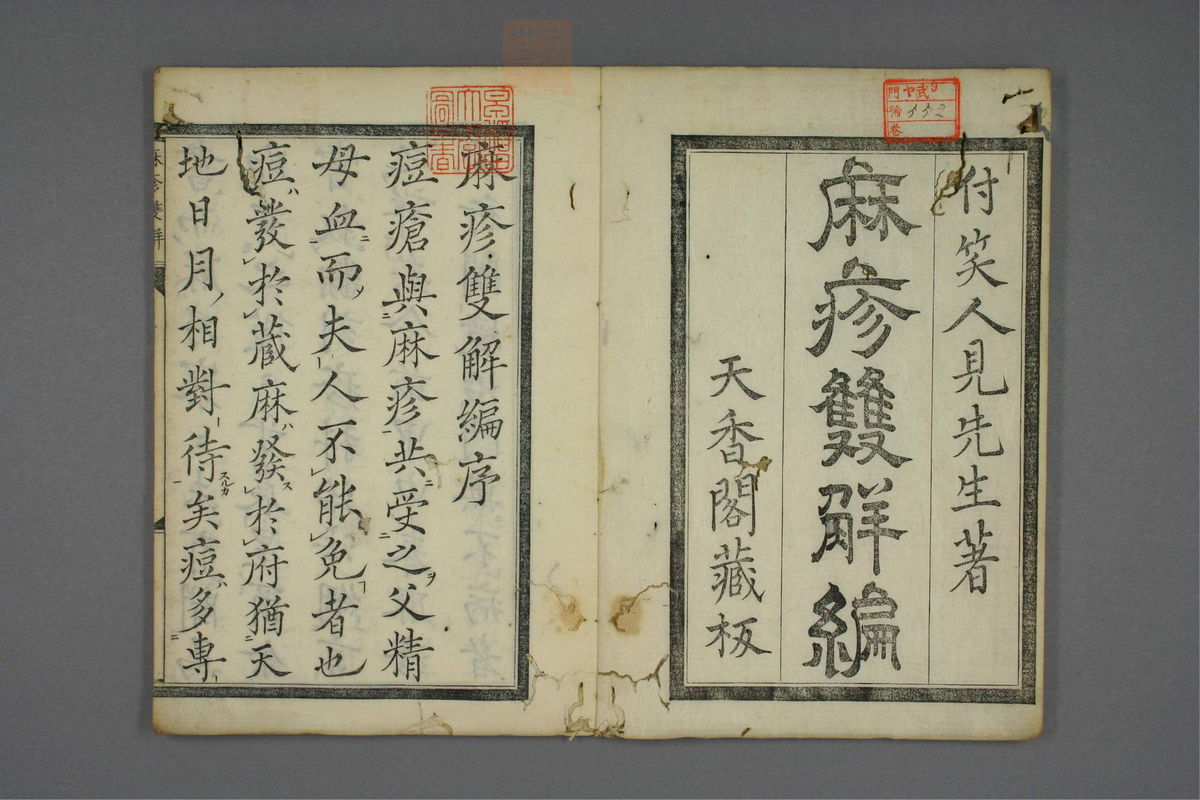 付笑人見先生著
麻疹雙解編
天香閣藏板
麻疹雙解編序
痘瘡與麻疹共受之父精
母血而夫人不能免者也
痘發於藏麻發於府猶天
地日月相對待矣痘多專